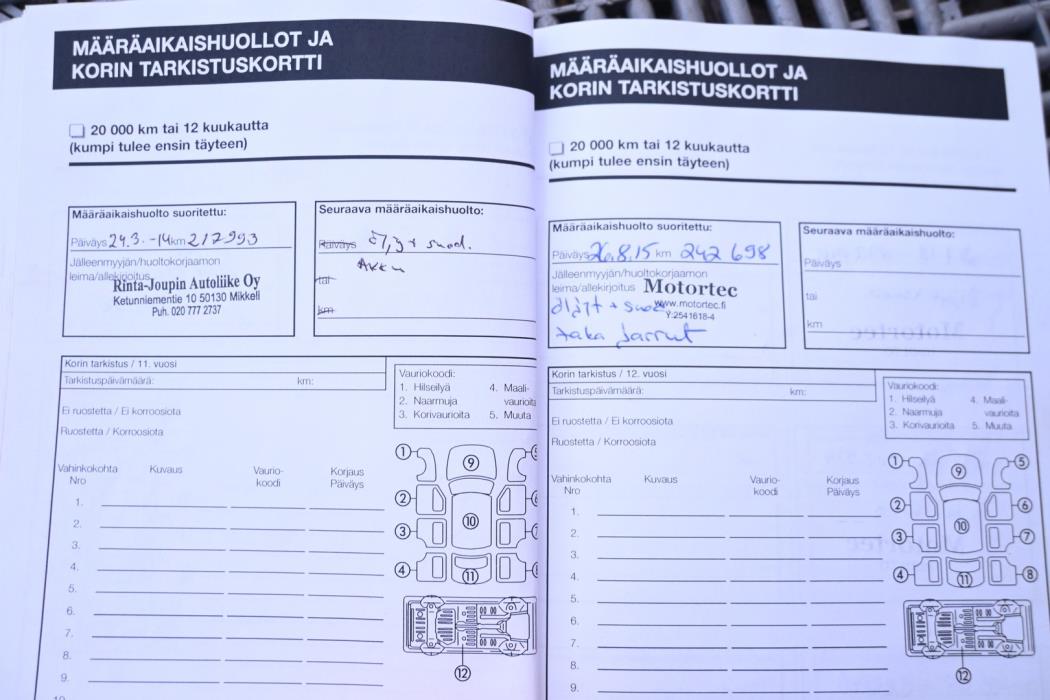 MÄÄRÄAIKAISHUOLLOT JA
KORIN TARKISTUSKORTTI
20 000 km tai 12 kuukautta
(kumpi tulee ensin täyteen)
Määräaikaishuolto suoritettu:
Päiväys 24.3.-14 km 217993
Jälleenmyyjän/huoltokorjaamon
leima/allekirjoitus
Rinta-Joupin Autoliike Oy
Ketunniementie 10 50130 Mikkeli
Puh. 020 777 2737
Seuraava määräaikaishuolto:
Päiväys öljy + suod.
Akku
tai
km
Korin tarkistus / 11. vuosi
Tarkistuspäivämäärä: km:
Ei ruostetta / Ei korroosiota
Ruostetta / Korroosiota
Vauriokoodi:
1. Hilseilyä 4. Maali-
2. Naarmuja vaurioita
3. Korivaurioita 5. Muuta
Vahinkokohta Kuvaus Vaurio- Korjaus
Nro koodi Päiväys
1.
2.
3.
4.
5.
6.
7.
8.
9.
1
2
3
4
9
10
11
12
MÄÄRÄAIKAISHUOLLOT JA
KORIN TARKISTUSKORTTI
20 000 km tai 12 kuukautta
(kumpi tulee ensin täyteen)
Määräaikaishuolto suoritettu:
Päiväys 26.8.15 km 242 698
Jälleenmyyjän/huoltokorjaamon
leima/allekirjoitus Motortec
www.motortec.fi
Y:2541618-4
öljyt + suod
taka jarrut
Seuraava määräaikaishuolto:
Päiväys
tai
km
Korin tarkistus / 12. vuosi
Tarkistuspäivämäärä: km:
Ei ruostetta / Ei korroosiota
Ruostetta / Korroosiota
Vauriokoodi:
1. Hilseilyä 4. Maali-
2. Naarmuja vaurioita
3. Korivaurioita 5. Muuta
Vahinkokohta Kuvaus Vaurio- Korjaus
Nro koodi Päiväys
1.
2.
3.
4.
5.
6.
7.
8.
9.
1
2
3
4
5
6
7
8
9
10
11
12